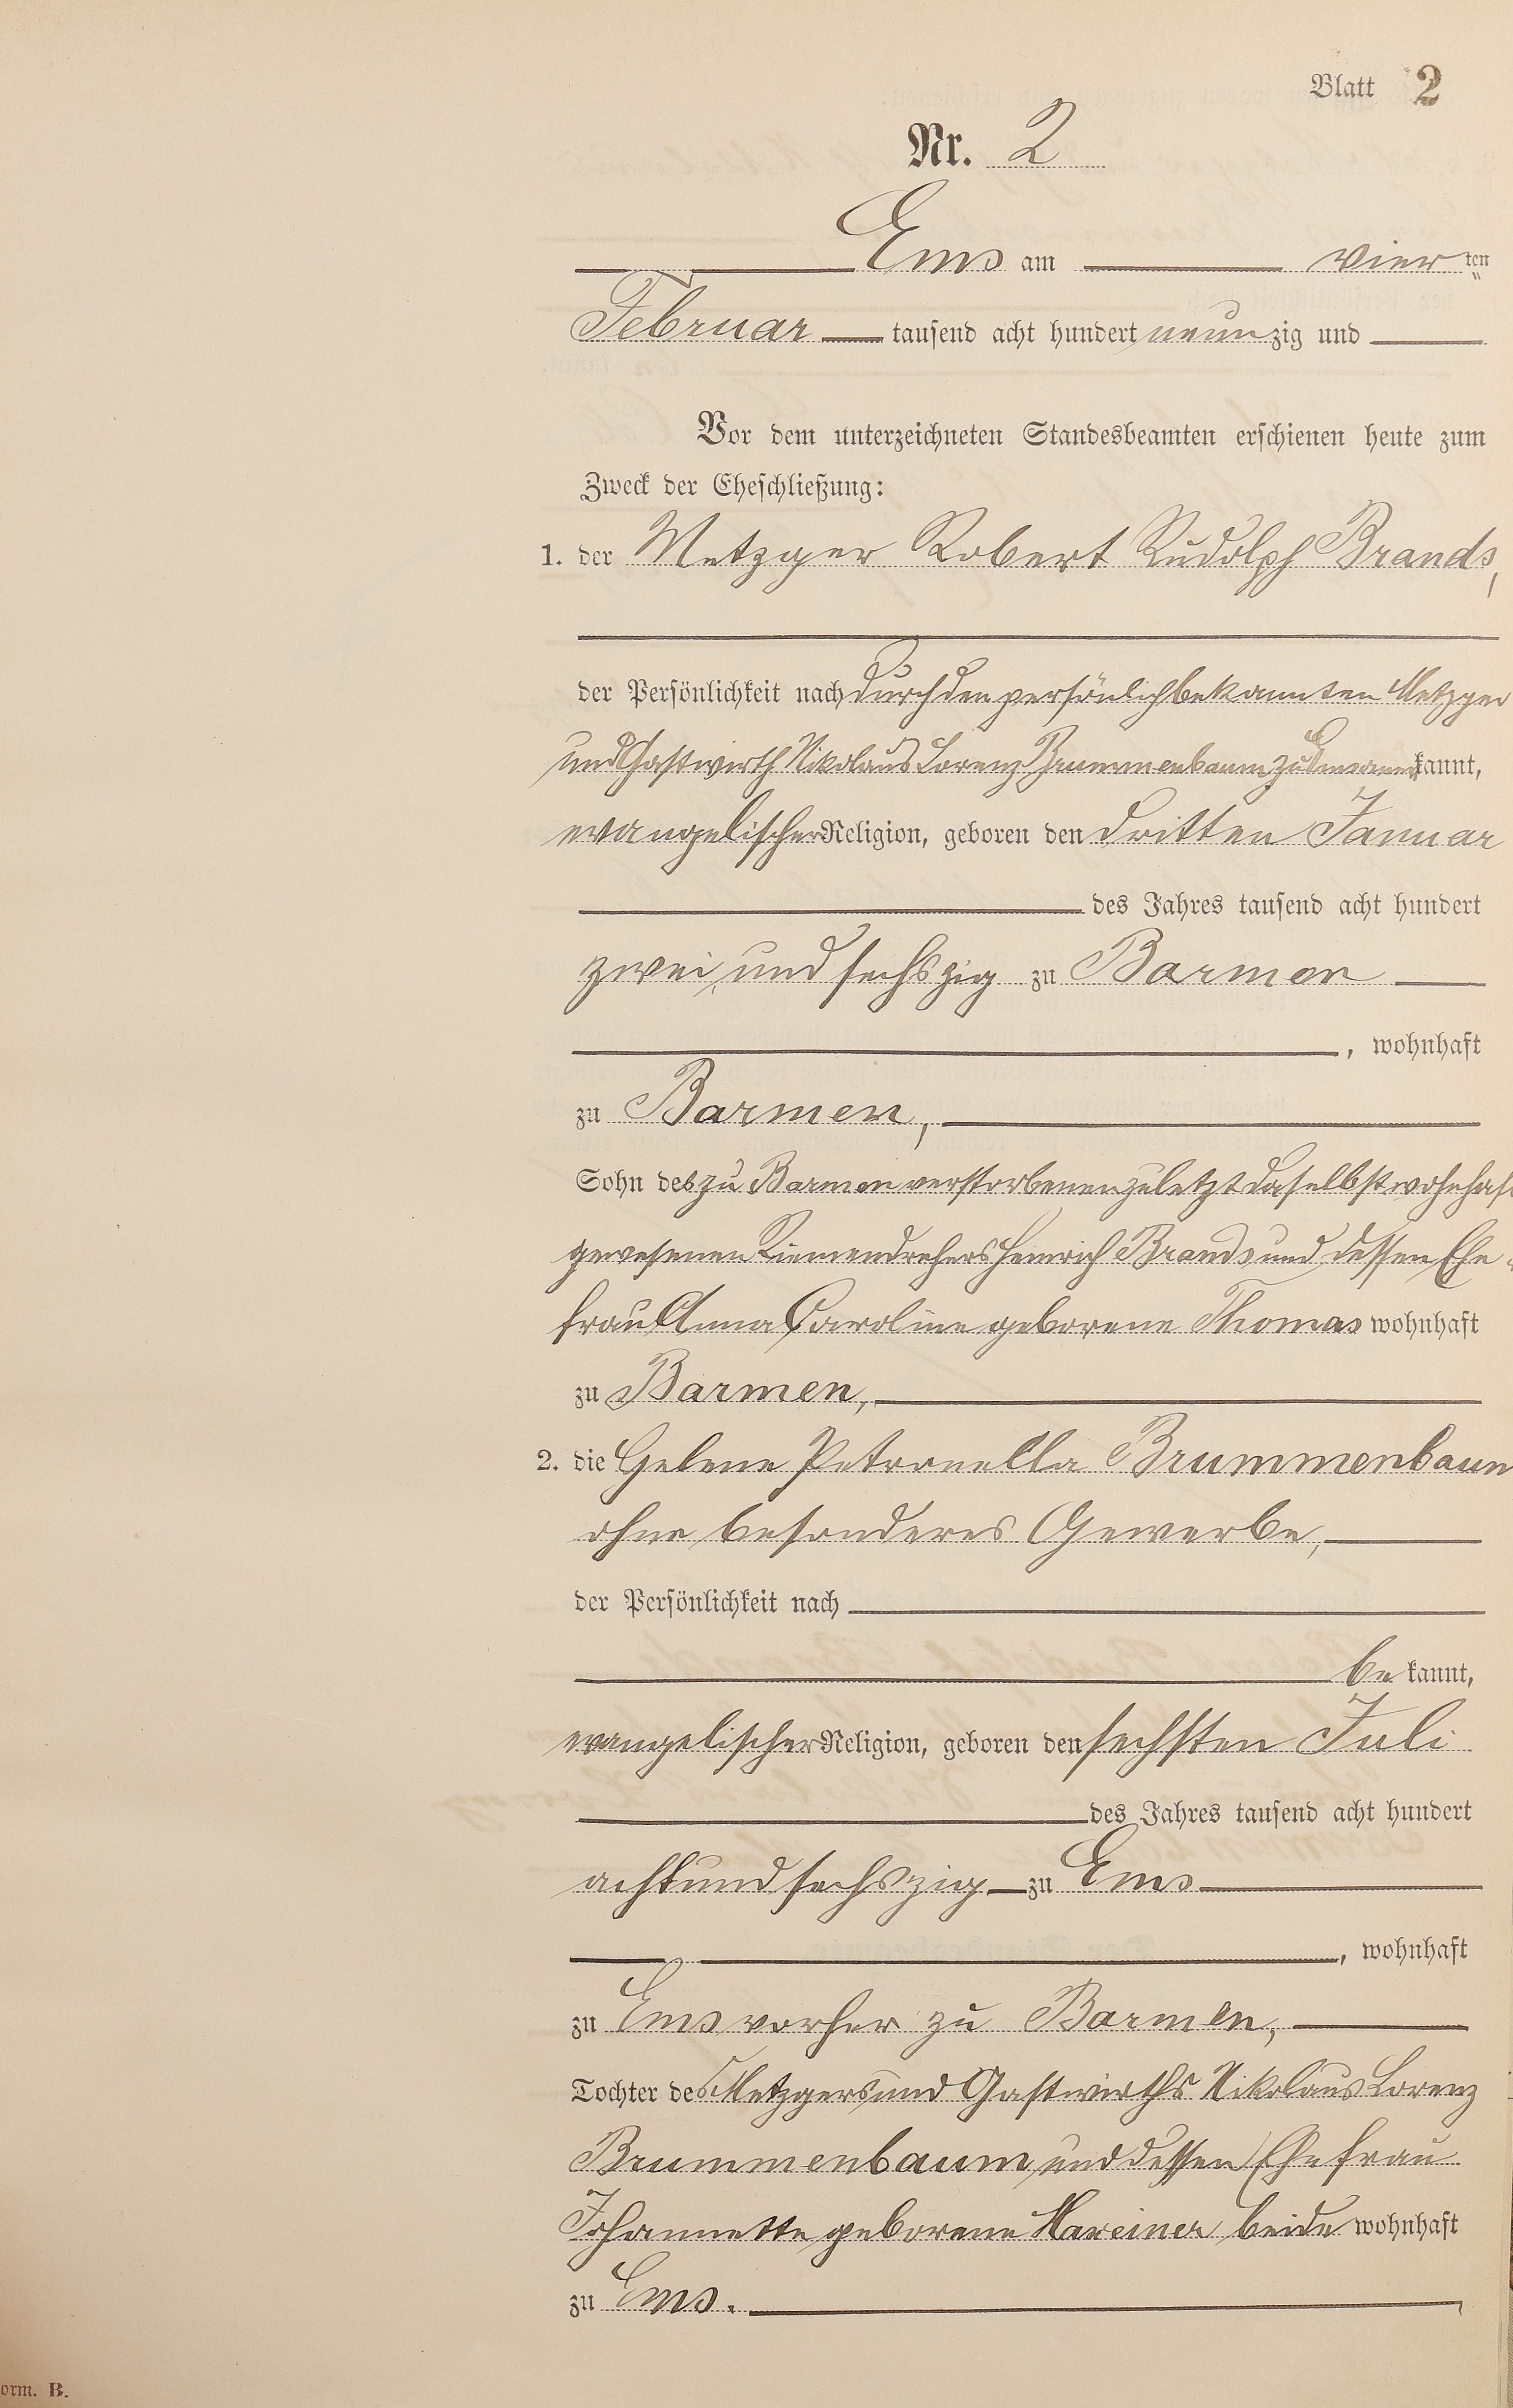 Blatt 2
Nr. 2
Ems am vierten
Februar tausend acht hundert neunzig und
Vor dem unterzeichneten Standesbeamten erschienen heute zum
Zweck der Eheschließung:
1. der Metzger Robert Rudolph Brands,
der Persönlichkeit nach durch den persönlich bekannten Metzger
und Gastwirth Nikolaus Lorenz Brummenbaum zu Ems anerkannt,
evangelischer Religion, geboren den dritten Januar
des Jahres tausend acht hundert
zwei und sechszig zu Barmen
, wohnhaft
zu Barmen,
Sohn des zu Barmen verstorbenen zuletzt daselbst wohnhaft
gewesenen Riemendrehers Heinrich Brands und dessen Ehe-
frau Anna Caroline geborene Thomas wohnhaft
zu Barmen,
2. die Helene Petronella Brummenbaum
ohne besonderes Gewerbe,
der Persönlichkeit nach
be kannt,
evangelischer Religion, geboren den sechsten Juli
des Jahres tausend acht hundert
acht und sechszig zu Ems
, wohnhaft
zu Ems vorher zu Barmen,
Tochter des Metzgers und Gastwirths Nikolaus Lorenz
Brummenbaum und dessen Ehefrau
Johannette geborene beide wohnhaft
zu Ems.
orm. B.